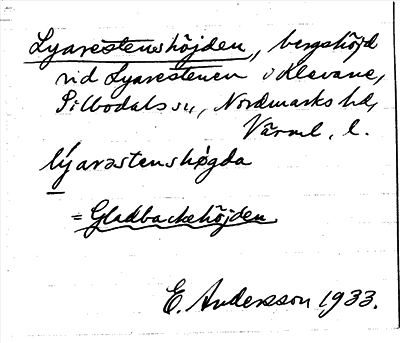 Lyarestenshöjden, bergshöjd
vid Lyarestenen i Klevane,
Silbodals sn, Nordmarks hd,
Värml. l.
lýarəstenshøgda
= Gladbackehöjden
E. Andersson 1933.